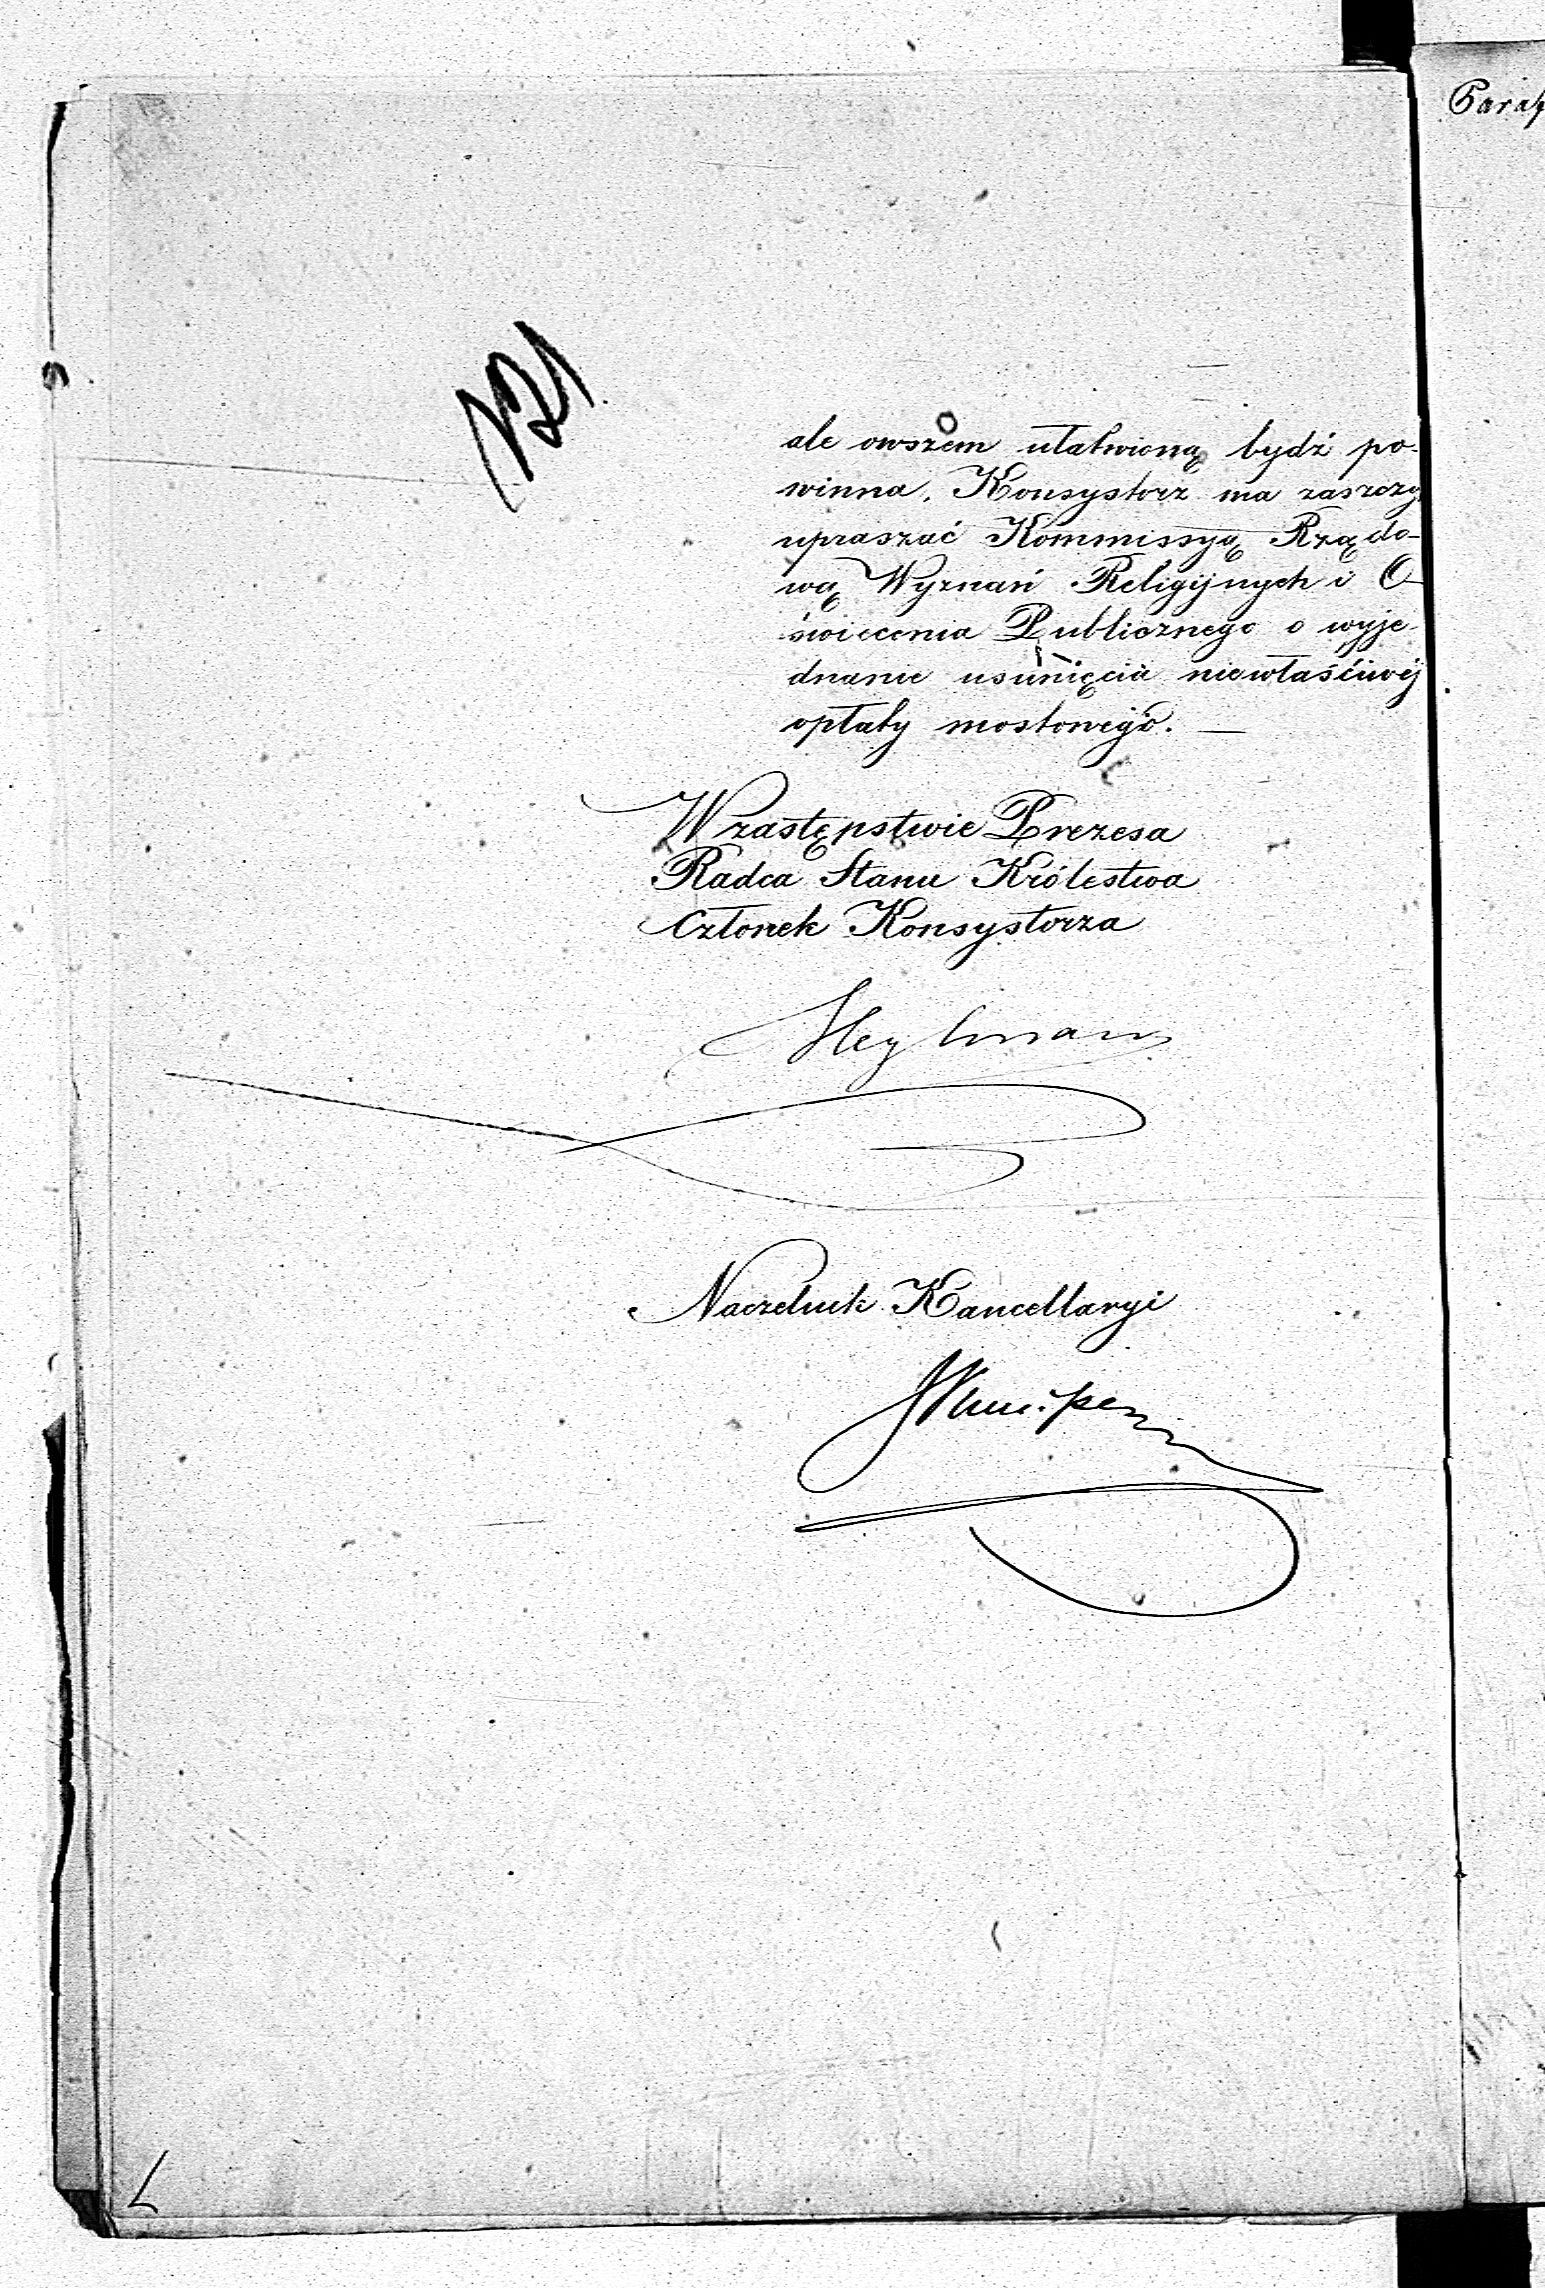 ale owszem ułatwioną bydź po-
winna. Konsystorz ma zaszczy
upraszać Kommissyą Rządo-
wą Wyznań Religijnych i O-
świecenia Publicznego o wyje-
dnanie usunięcia niewłaściwéj
opłaty mostowego. —
W zastępstwie Prezesa
Radca Stanu Królestwa
Członek Konsystorza
Heylman
Naczelnik Kancellaryi